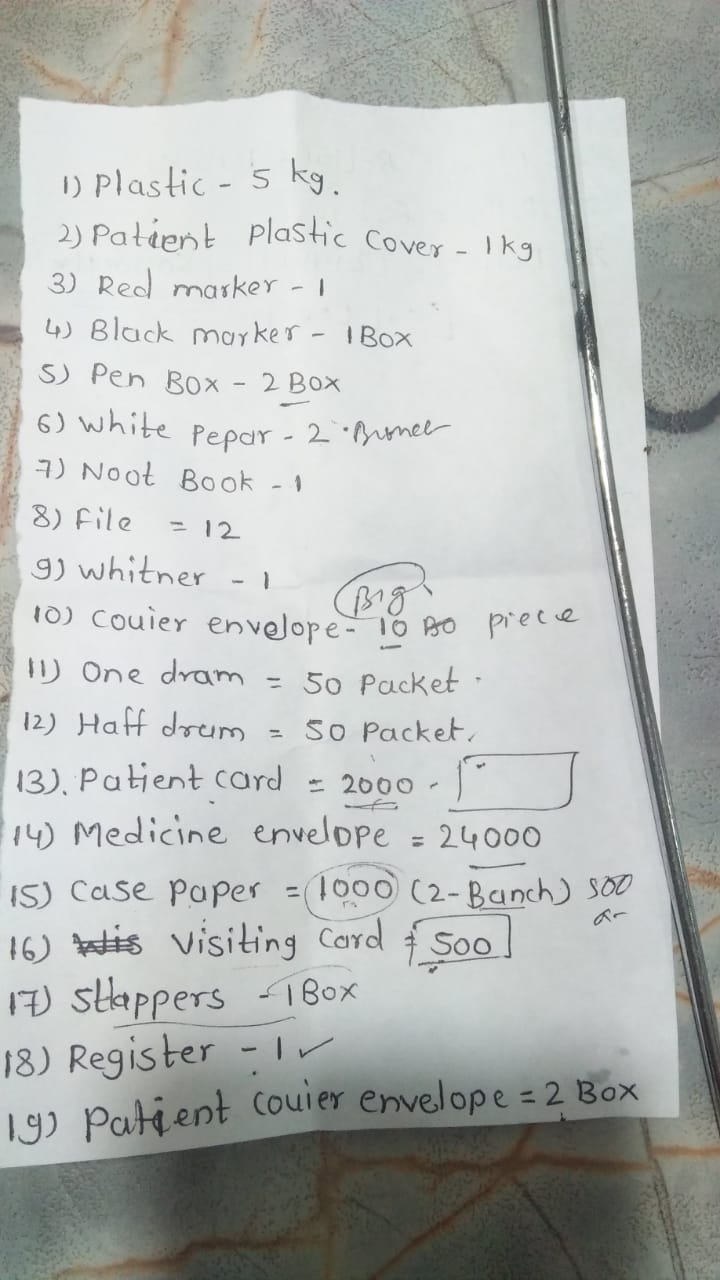 1) Plastic - 5 kg.
2) Patient plastic Cover - 1kg
3) Red marker - 1
4) Black marker - 1 Box
5) Pen Box - 2 Box
6) White Pepar - 2
7) Noot Book - 1
8) File = 12
9) Whitner - 1
Big
10) Couier envelope - 10 piece
11) One dram = 50 Packet.
12) Haff dram = 50 Packet.
13). Patient card = 2000 -
14) Medicine envelope = 24000
15) Case Paper = 1000 (2-Banch) 500
16) Visiting Card = 500
17) Stappers - 1 Box
18) Register - 1 ✓
19) Patient couier envelope = 2 Box